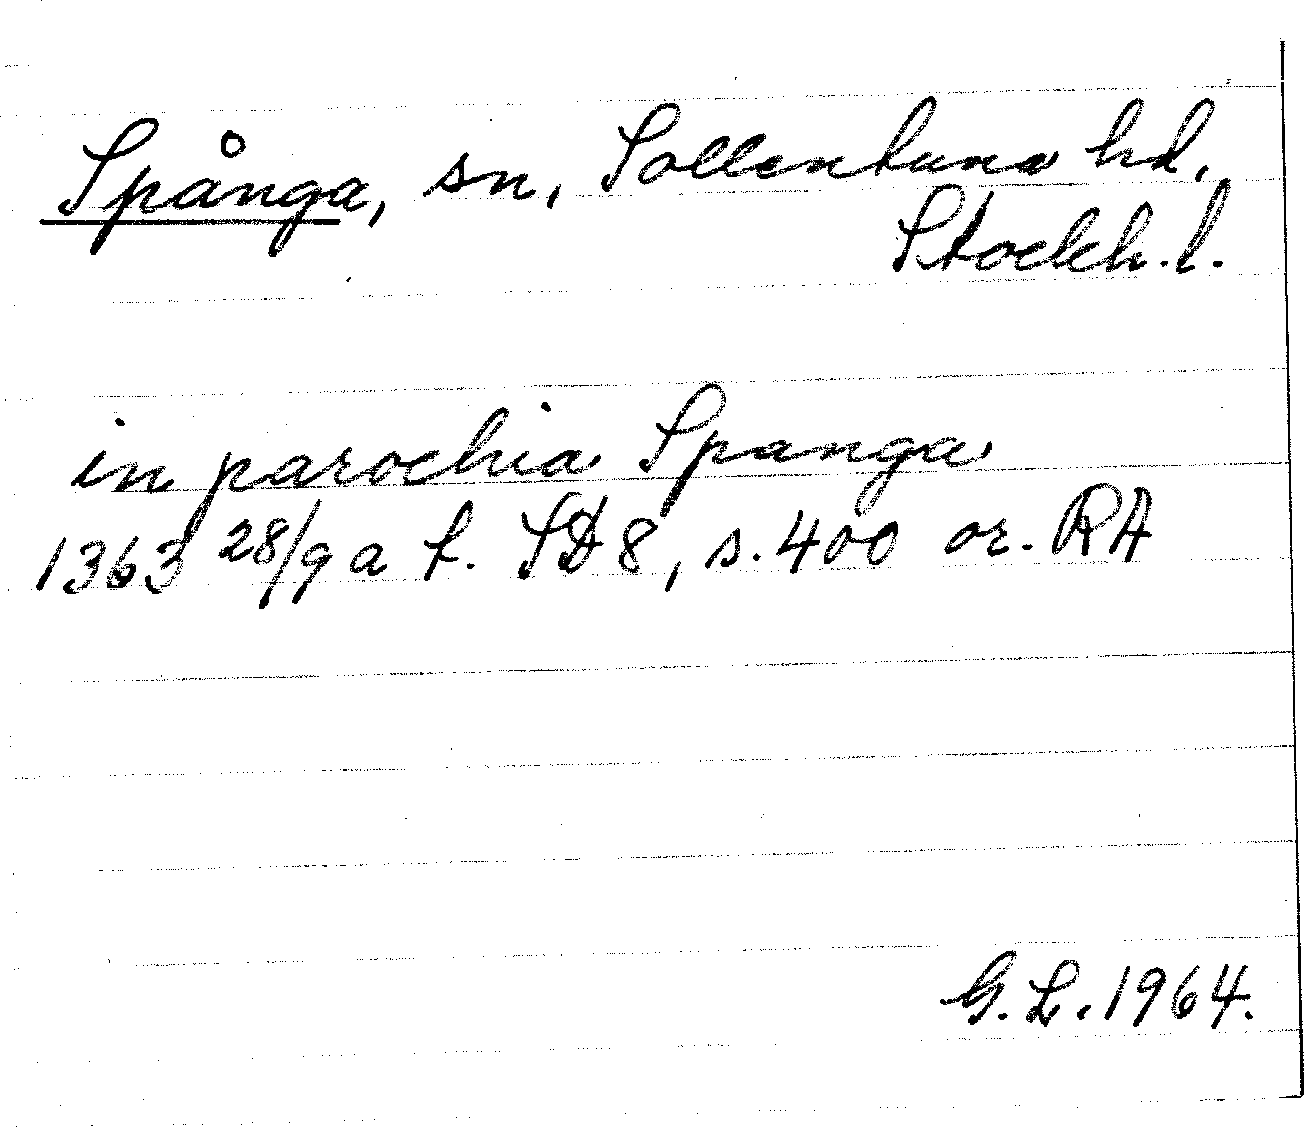 Spånga, sn, Sollentuna hd,
Stockh. l.
in parochia Spanga
1363 28/9 a L. SD 8, s. 400 or. RA
G. L. 1964.